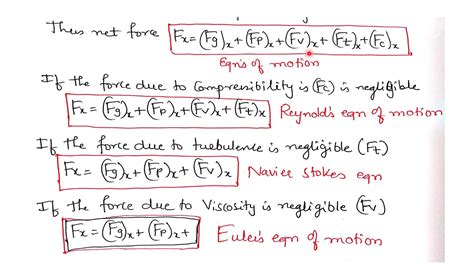 Thus net force Fx = (Fg)x + (Fp)x + (Fv)x + (Ft)x + (Fc)x
Eqn's of motion
If the force due to Compressibility is (Fc) is negligible
Fx = (Fg)x + (Fp)x + (Fv)x + (Ft)x Reynold's eqn of motion
If the force due to turbulence is negligible (Ft)
Fx = (Fg)x + (Fp)x + (Fv)x Navier Stokes eqn
If the force due to Viscosity is negligible (Fv)
Fx = (Fg)x + (Fp)x + Euler's eqn of motion